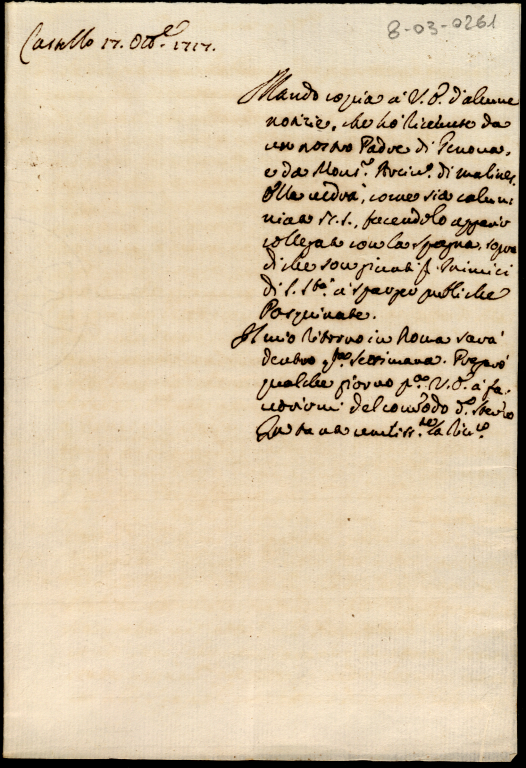 8-03-0261
Castello 17. Ott.e 1717.
Mando copia à V. P. d'alcune
notizie, che hò ricevute da
un nostro Padre di Genova,
e da Mons.r Arciv.o di malines.
Ella vedrà, come sia calun
niata S. S., facendolo apparir
collegata con la Spagna, sopra
di che son giunti gl'Inimici
di S. S.tà à sparger publiche
Pasquinate.
Il mio ritorno in Roma sarà
dentro q.sta settimana. Pregarò
qualche giorno p.a V. P. à fa-
vorirmi del comodo d.o